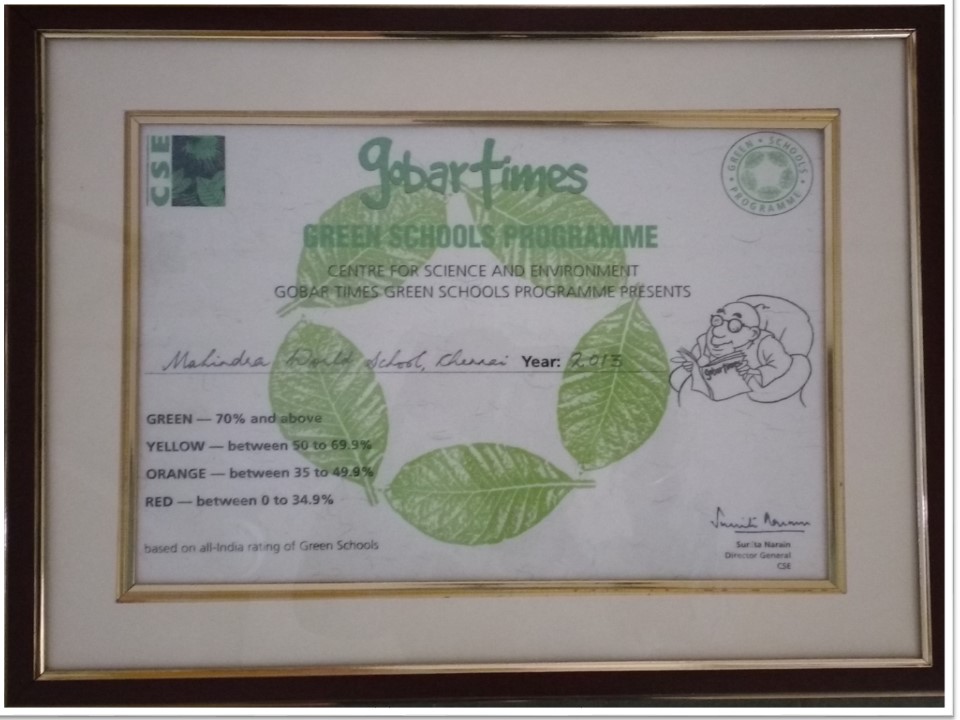 CSE
gobar times
GREEN • SCHOOLS • PROGRAMME •
GREEN SCHOOLS PROGRAMME
CENTRE FOR SCIENCE AND ENVIRONMENT
GOBAR TIMES GREEN SCHOOLS PROGRAMME PRESENTS
Mahindra World School, Chennai Year: 2013
gobar times
GREEN — 70% and above
YELLOW — between 50 to 69.9%
ORANGE — between 35 to 49.9%
RED — between 0 to 34.9%
based on all-India rating of Green Schools
Sunita Narain
Sunita Narain
Director General
CSE